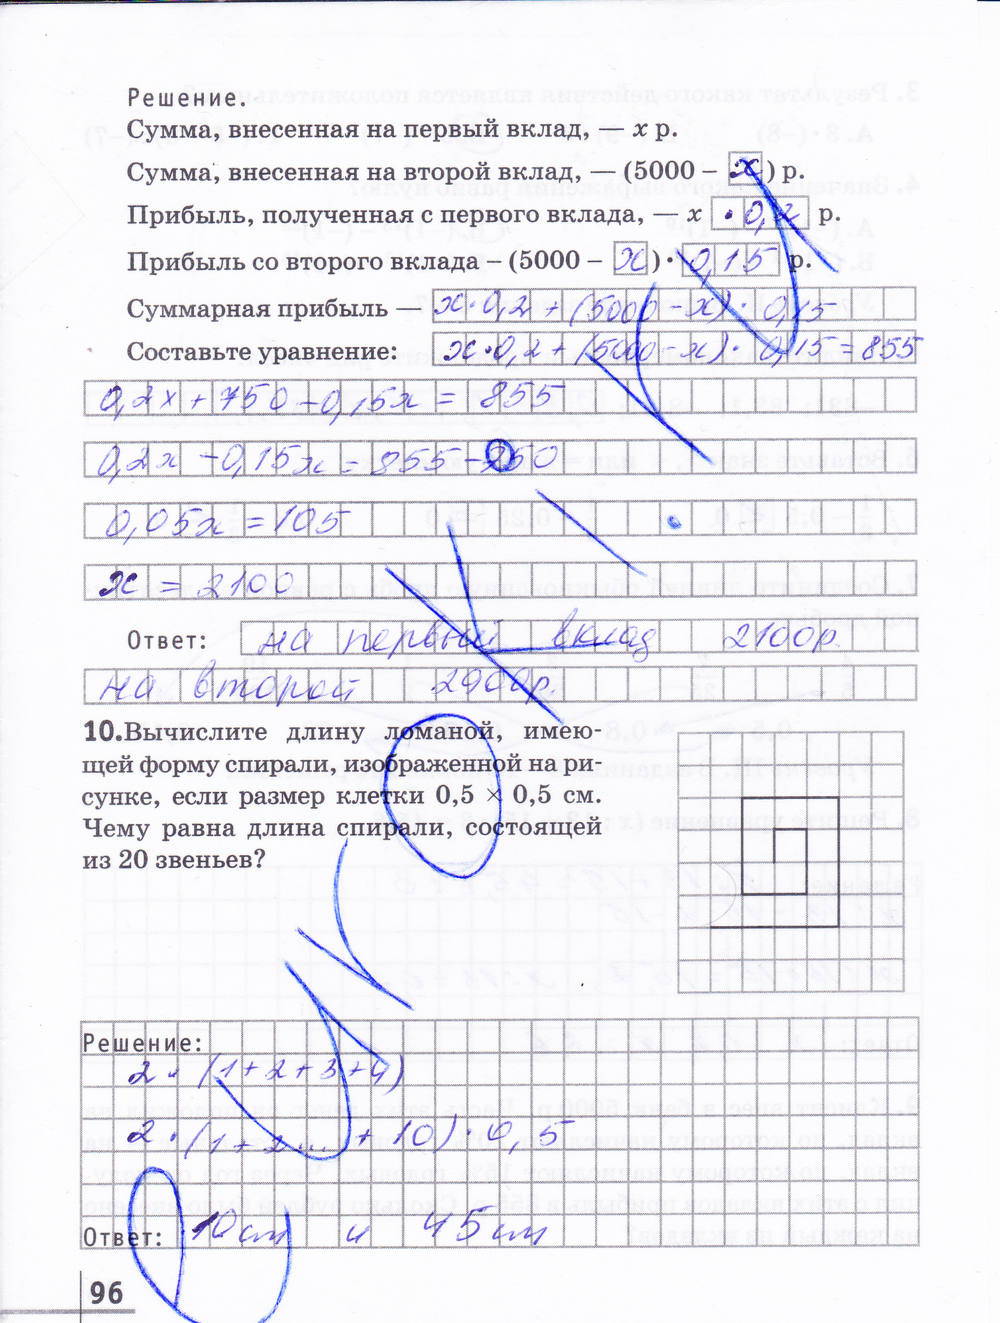 Решение.
Сумма, внесенная на первый вклад, — x р.
Сумма, внесенная на второй вклад, — (5000 – x) р.
Прибыль, полученная с первого вклада, — x · 0,2 р.
Прибыль со второго вклада – (5000 – x) · 0,15 р.
Суммарная прибыль — x·0,2 + (5000 – x) · 0,15
Составьте уравнение: x·0,2 + (5000 – x) · 0,15 = 855
0,2x + 750 – 0,15x = 855
0,2x – 0,15x = 855 – 750
0,05x = 105
x = 2100
Ответ: на первый вклад 2100р.
на второй 2900р.
10. Вычислите длину ломаной, имею-
щей форму спирали, изображенной на ри-
сунке, если размер клетки 0,5 × 0,5 см.
Чему равна длина спирали, состоящей
из 20 звеньев?
Решение:
2 · (1 + 2 + 3 + 4)
2 · (1 + 2 ... + 10) · 0,5
Ответ: 10см и 45см
96